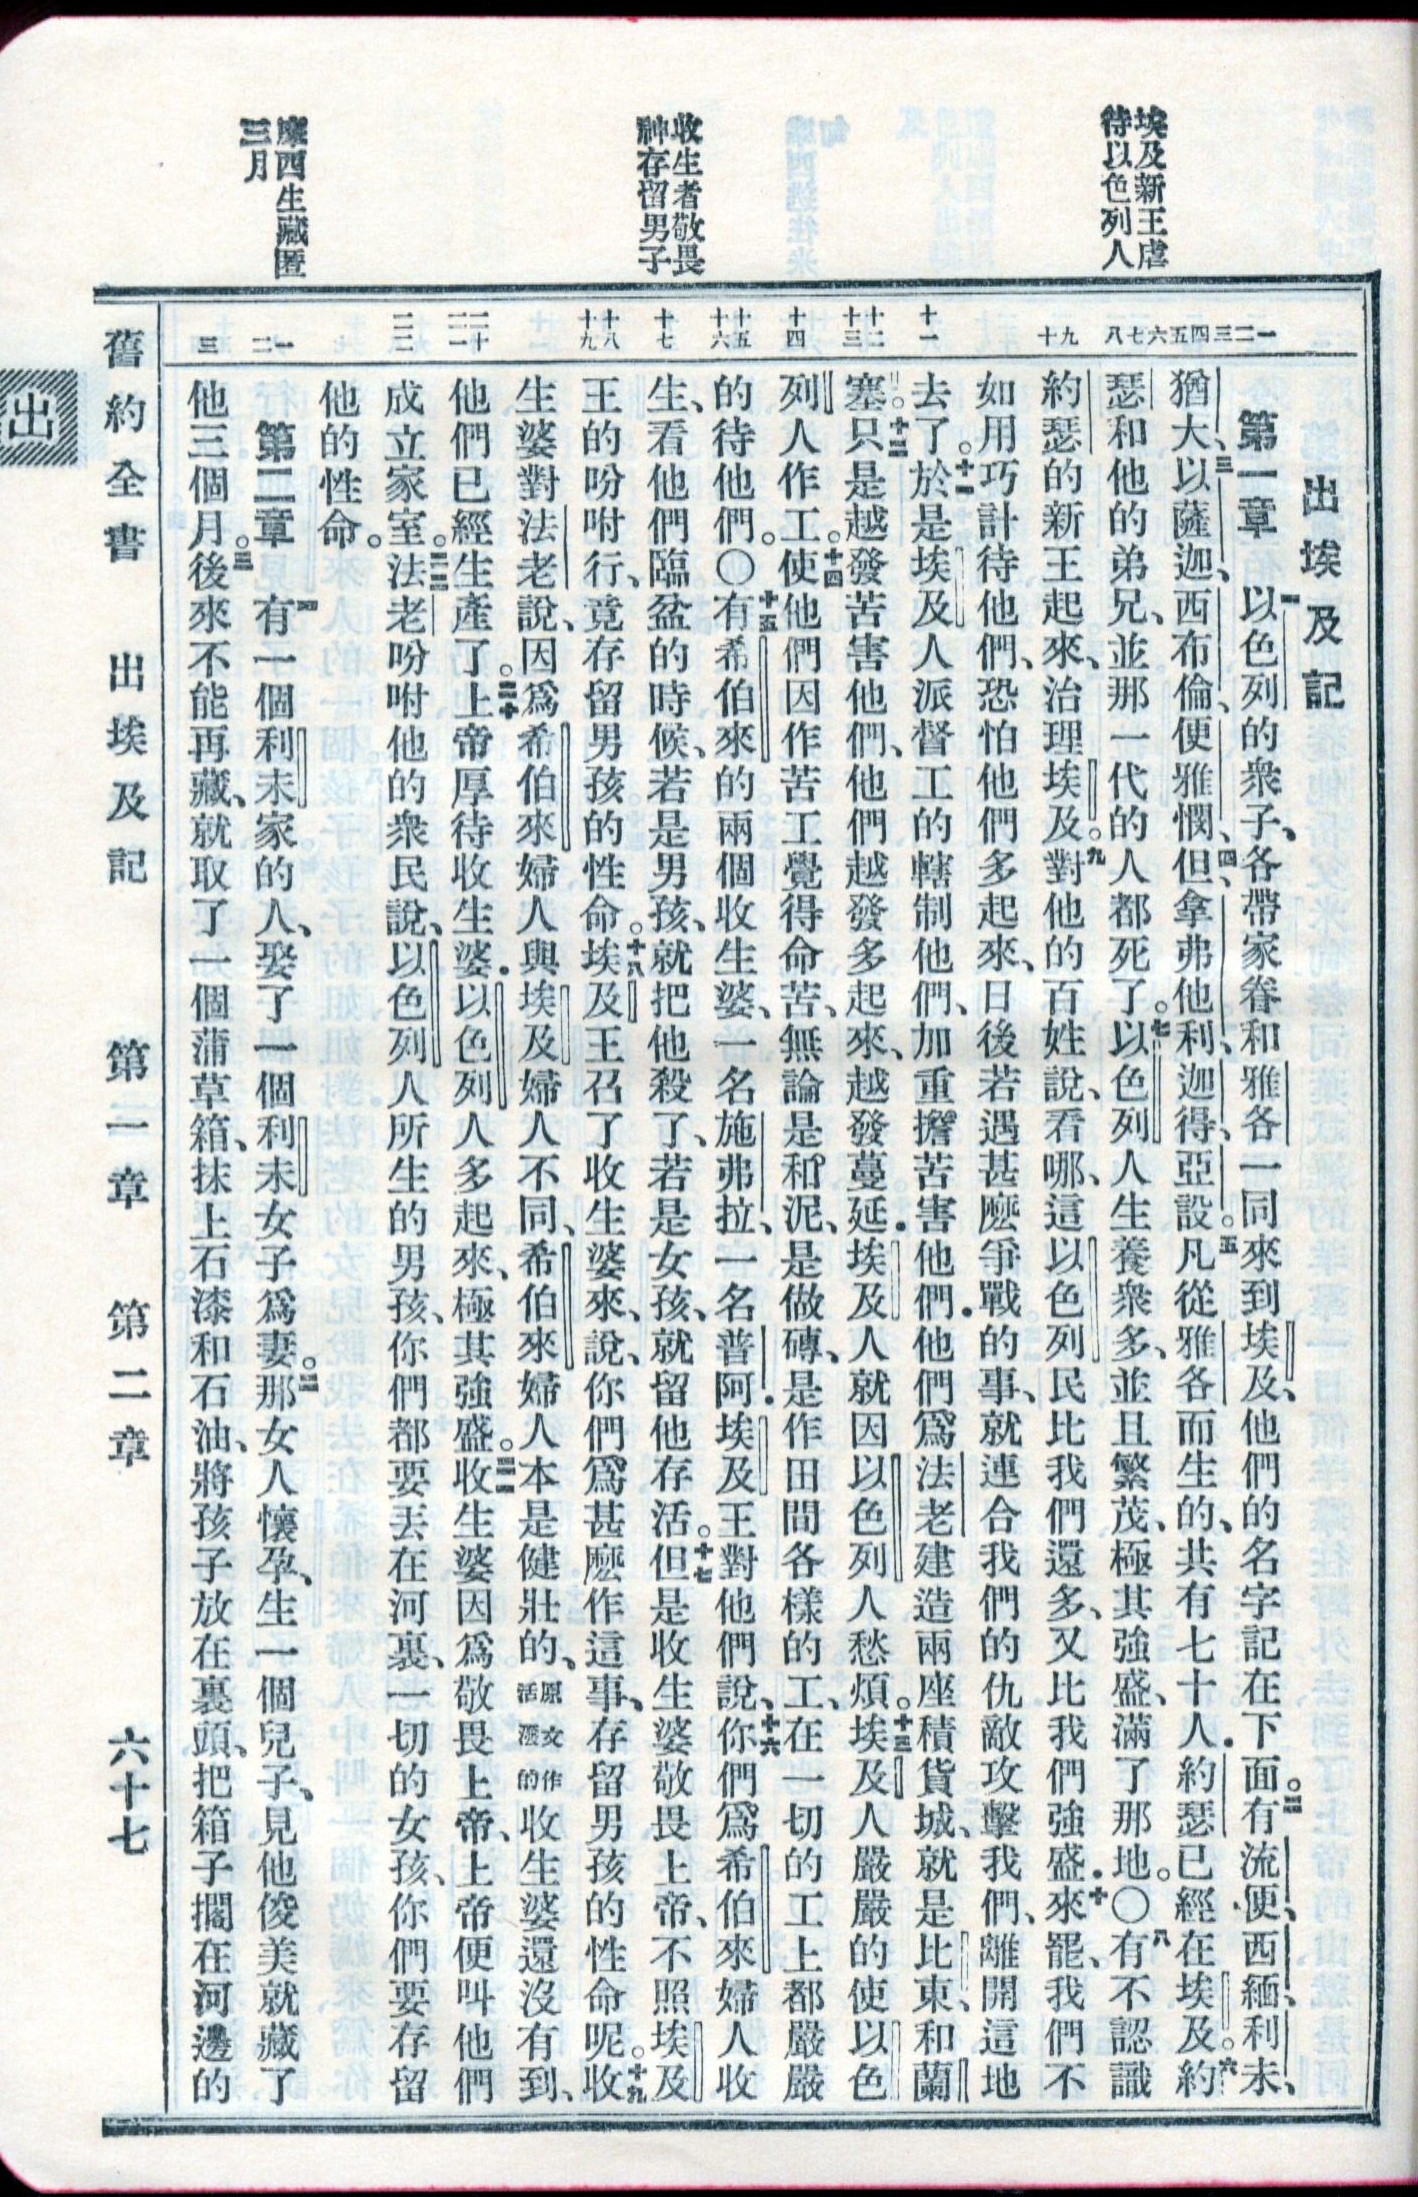 埃及新王虐
待以色列人
收生者敬畏
神存留男子
摩西生藏匿
三月
出埃及記
一 二 三 四 五 六 七 八 九 十 十一 十二 十三 十四 十五 十六 十七 十八 十九 二十 二一 二二 一 二 三
第一章 一以色列的衆子、各帶家眷和雅各一同來到埃及、他們的名字記在下面。二有流便、西緬、利未、
猶大、三以薩迦、西布倫、便雅憫、四但、拿弗他利、迦得、亞設。五凡從雅各而生的、共有七十人.約瑟已經在埃及。六約
瑟和他的弟兄、並那一代的人都死了。七以色列人生養衆多、並且繁茂、極其強盛、滿了那地。〇八有不認識
約瑟的新王起來、治理埃及。九對他的百姓說、看哪、這以色列民比我們還多、又比我們強盛.十來罷、我們不
如用巧計待他們、恐怕他們多起來、日後若遇甚麽爭戰的事、就連合我們的仇敵攻擊我們、離開這地
去了。十一於是埃及人派督工的轄制他們、加重擔苦害他們.他們爲法老建造兩座積貨城、就是比東、和蘭
塞。十二只是越發苦害他們、他們越發多起來、越發蔓延.埃及人就因以色列人愁煩。十三埃及人嚴嚴的使以色
列人作工。十四使他們因作苦工覺得命苦、無論是和泥、是做磚、是作田間各樣的工、在一切的工上都嚴嚴
的待他們。〇十五有希伯來的兩個收生婆、一名施弗拉、一名普阿.埃及王對他們說、十六你們爲希伯來婦人收
生、看他們臨盆的時候、若是男孩、就把他殺了、若是女孩、就留他存活。十七但是收生婆敬畏上帝、不照埃及
王的吩咐行、竟存留男孩的性命。十八埃及王召了收生婆來、說、你們爲甚麽作這事、存留男孩的性命呢。十九收
生婆對法老說、因爲希伯來婦人與埃及婦人不同、希伯來婦人本是健壯的、〇原文作活潑的收生婆還沒有到、
他們已經生產了。二十上帝厚待收生婆.以色列人多起來、極其強盛。二一收生婆因爲敬畏上帝、上帝便叫他們
成立家室。二二法老吩咐他的衆民說、以色列人所生的男孩、你們都要丟在河裏、一切的女孩、你們要存留
他的性命。
第二章 一有一個利未家的人、娶了一個利未女子爲妻。二那女人懷孕、生一個兒子、見他俊美就藏了
他三個月。三後來不能再藏、就取了一個蒲草箱、抹上石漆和石油、將孩子放在裏頭、把箱子擱在河邊的
舊約全書 出埃及記 第一章 第二章 六十七
出